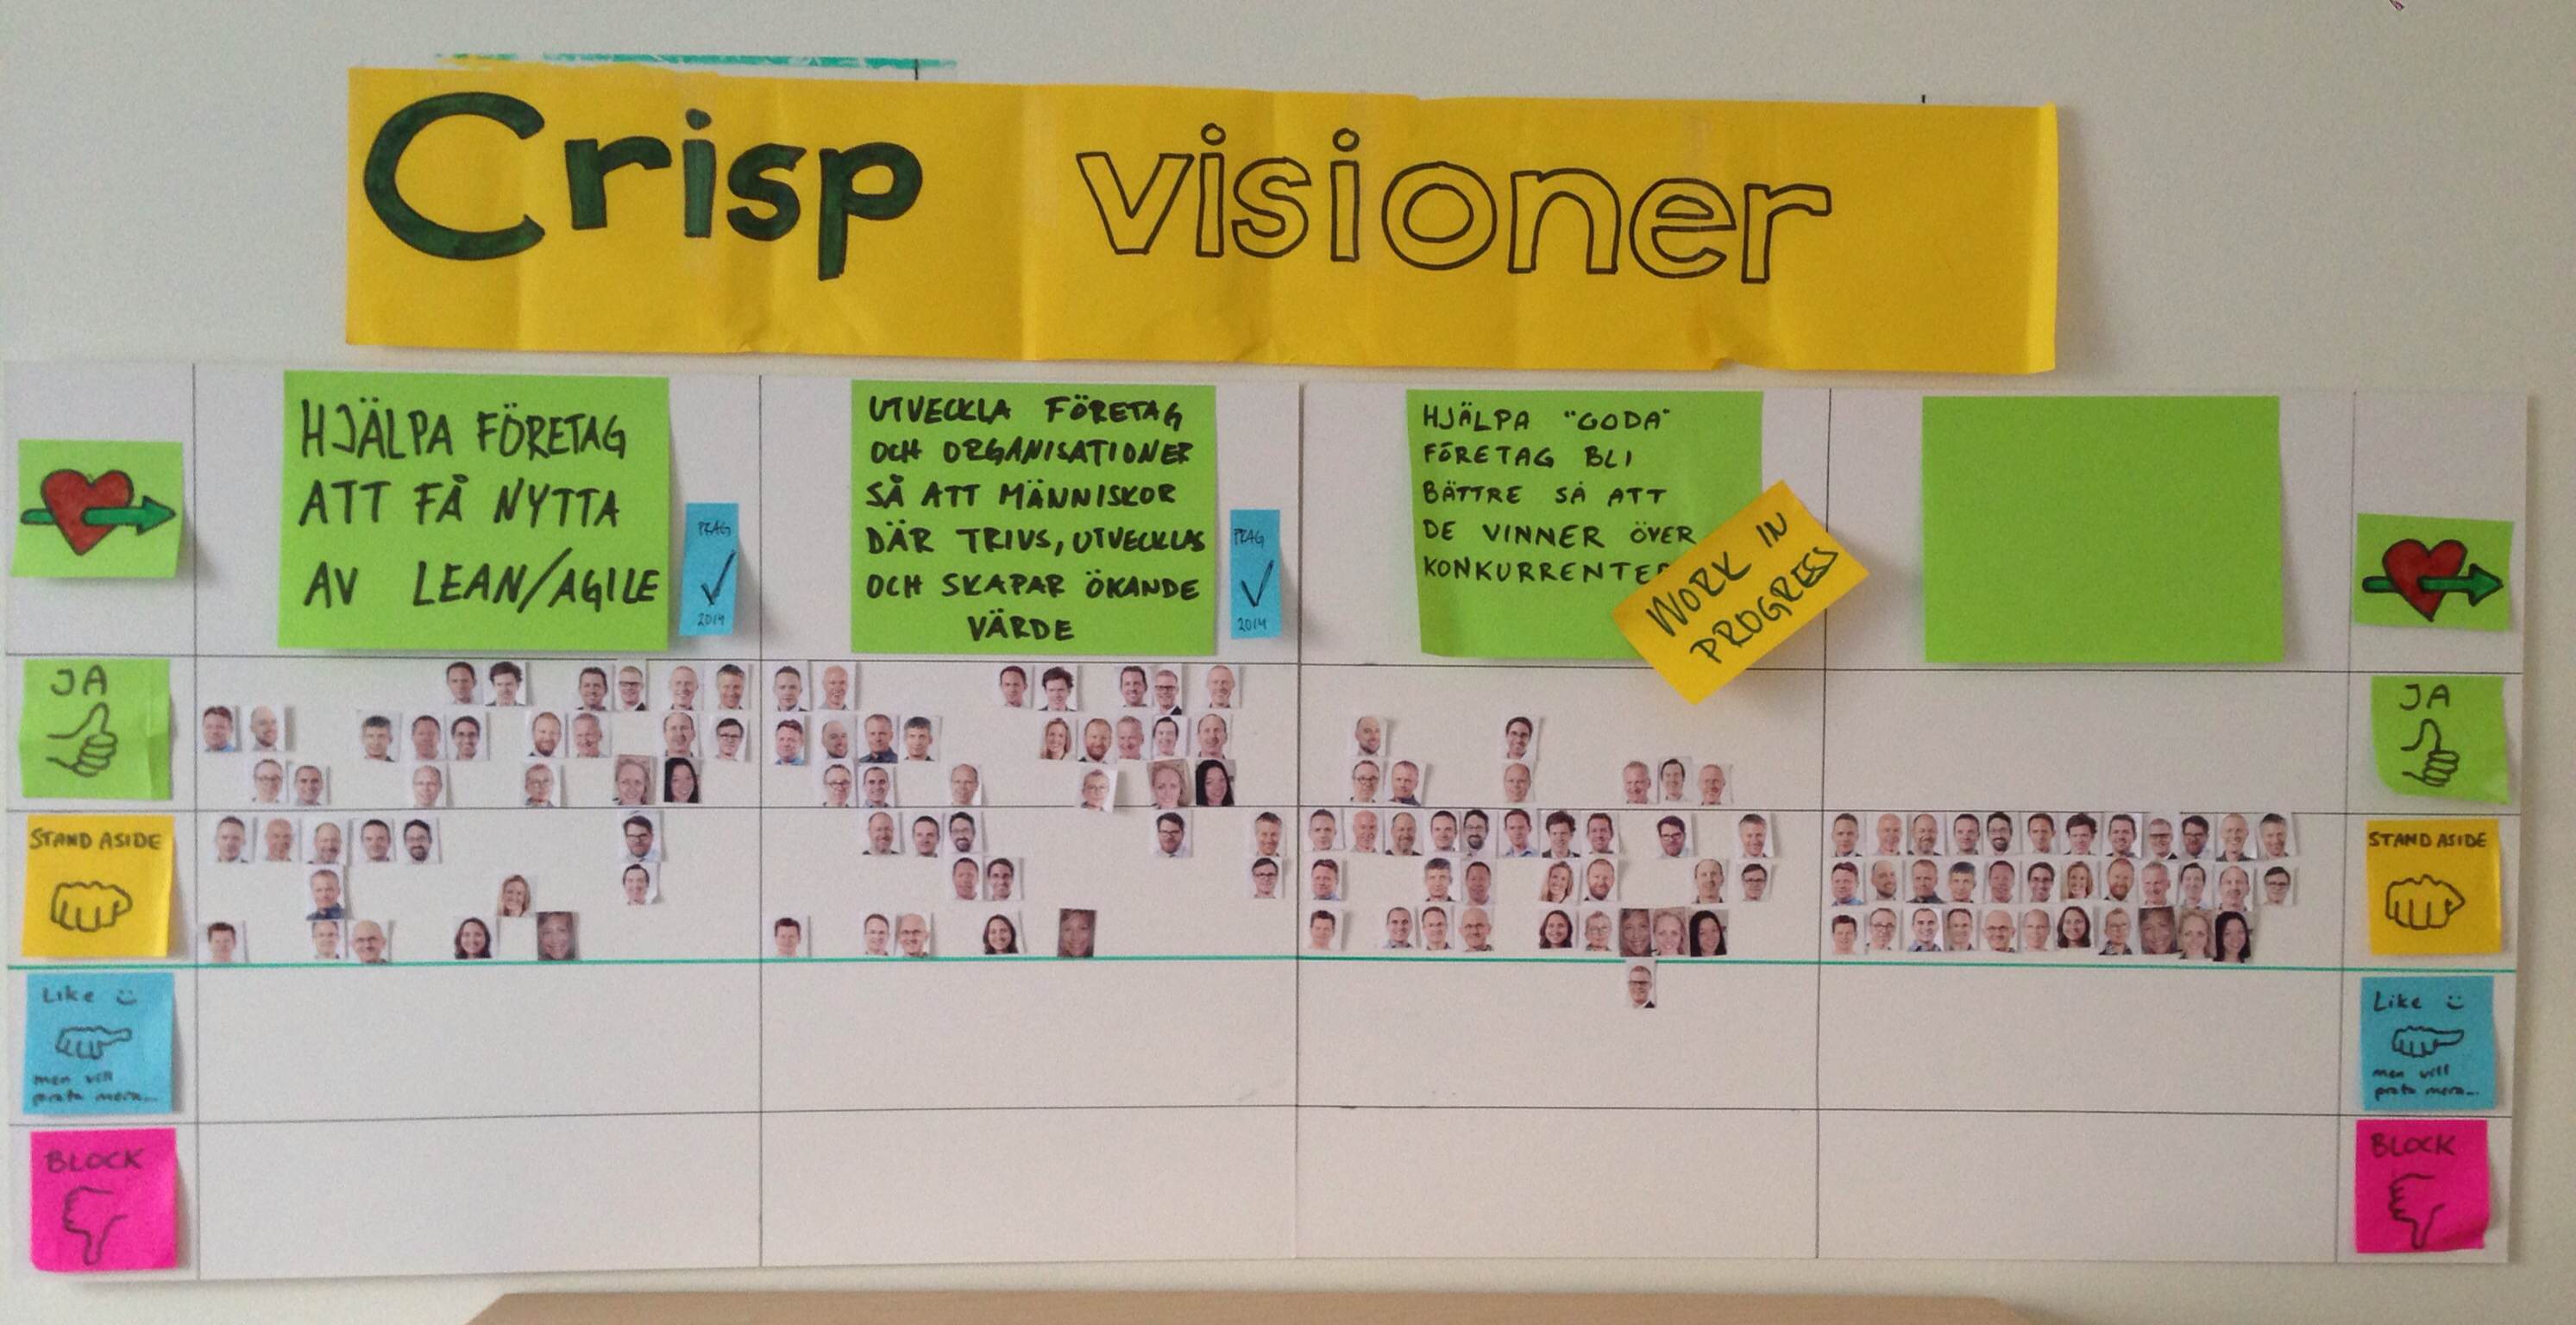 Crisp visioner
HJÄLPA FÖRETAG
ATT FÅ NYTTA
AV LEAN/AGILE
PRAG
2014
UTVECKLA FÖRETAG
OCH ORGANISATIONER
SÅ ATT MÄNNISKOR
DÄR TRIVS, UTVECKLAS
OCH SKAPAR ÖKANDE
VÄRDE
PRAG
2014
HJÄLPA "GODA"
FÖRETAG BLI
BÄTTRE SÅ ATT
DE VINNER ÖVER
KONKURRENTER
WORK IN
PROGRESS
JA
JA
STAND ASIDE
STAND ASIDE
Like :)
men vill
prata mera...
Like :)
men vill
prata mera...
BLOCK
BLOCK